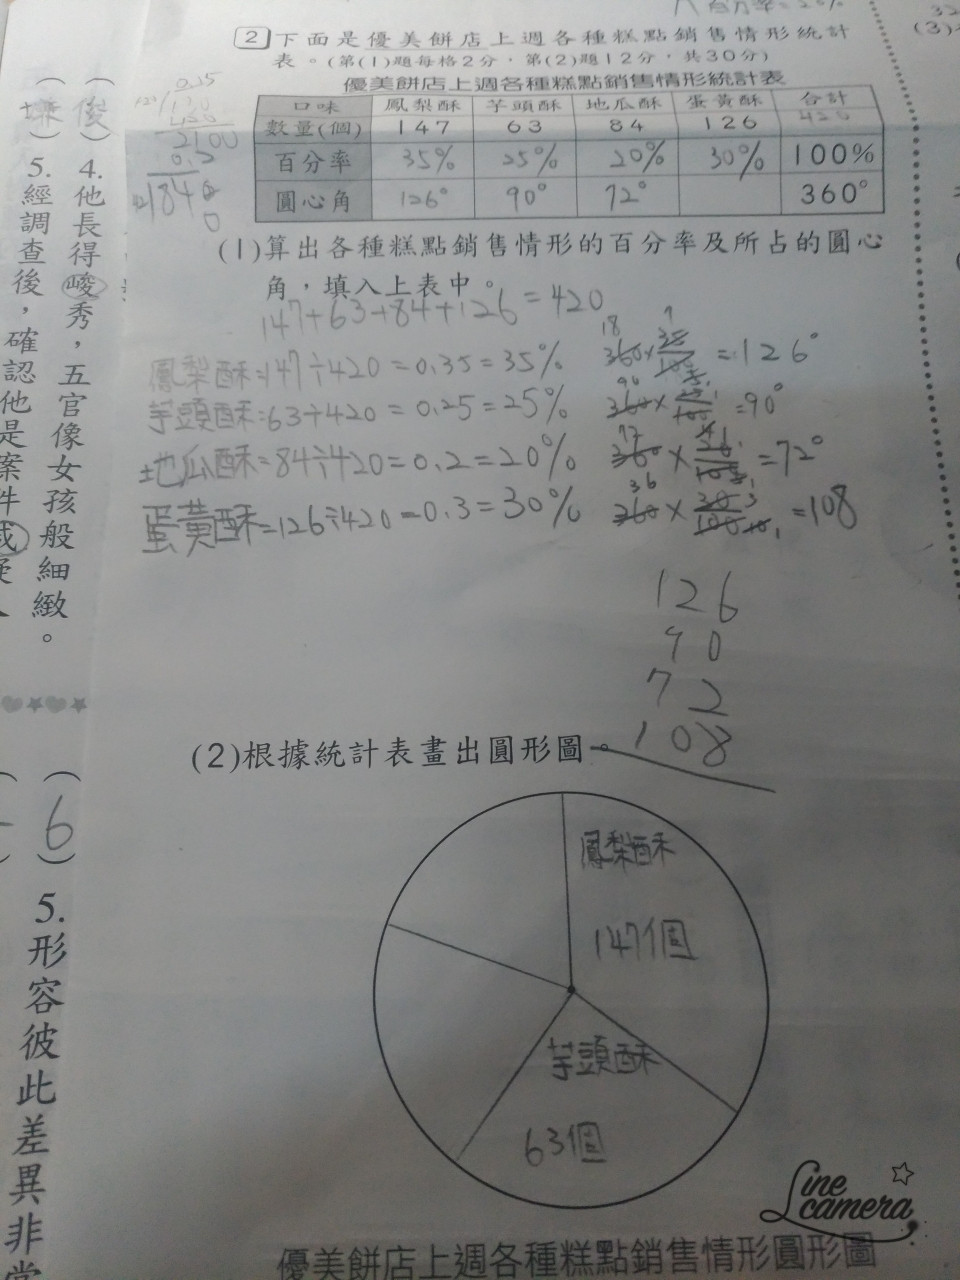 百分率=20%
(3)
2 下面是優美餅店上週各種糕點銷售情形統計
表。(第(1)題每格2分,第(2)題12分,共30分)
優美餅店上週各種糕點銷售情形統計表
口味 鳳梨酥 芋頭酥 地瓜酥 蛋黃酥 合計
數量(個) 147 63 84 126 420
百分率 35% 25% 20% 30% 100%
圓心角 126° 90° 72° 360°
(1)算出各種糕點銷售情形的百分率及所占的圓心
角,填入上表中。
147+63+84+126=420
鳳梨酥=147÷420=0.35=35% =126°
芋頭酥=63÷420=0.25=25% =90°
地瓜酥=84÷420=0.2=20% =72°
蛋黃酥=126÷420=0.3=30% =108
126
90
72
108
(2)根據統計表畫出圓形圖。
鳳梨酥
147個
芋頭酥
63個
優美餅店上週各種糕點銷售情形圓形圖
(俊)4.他長得峻秀,五官像女孩般細緻。
5.經調查後,確認他是案件
(6)5.形容彼此差異非常
Line camera